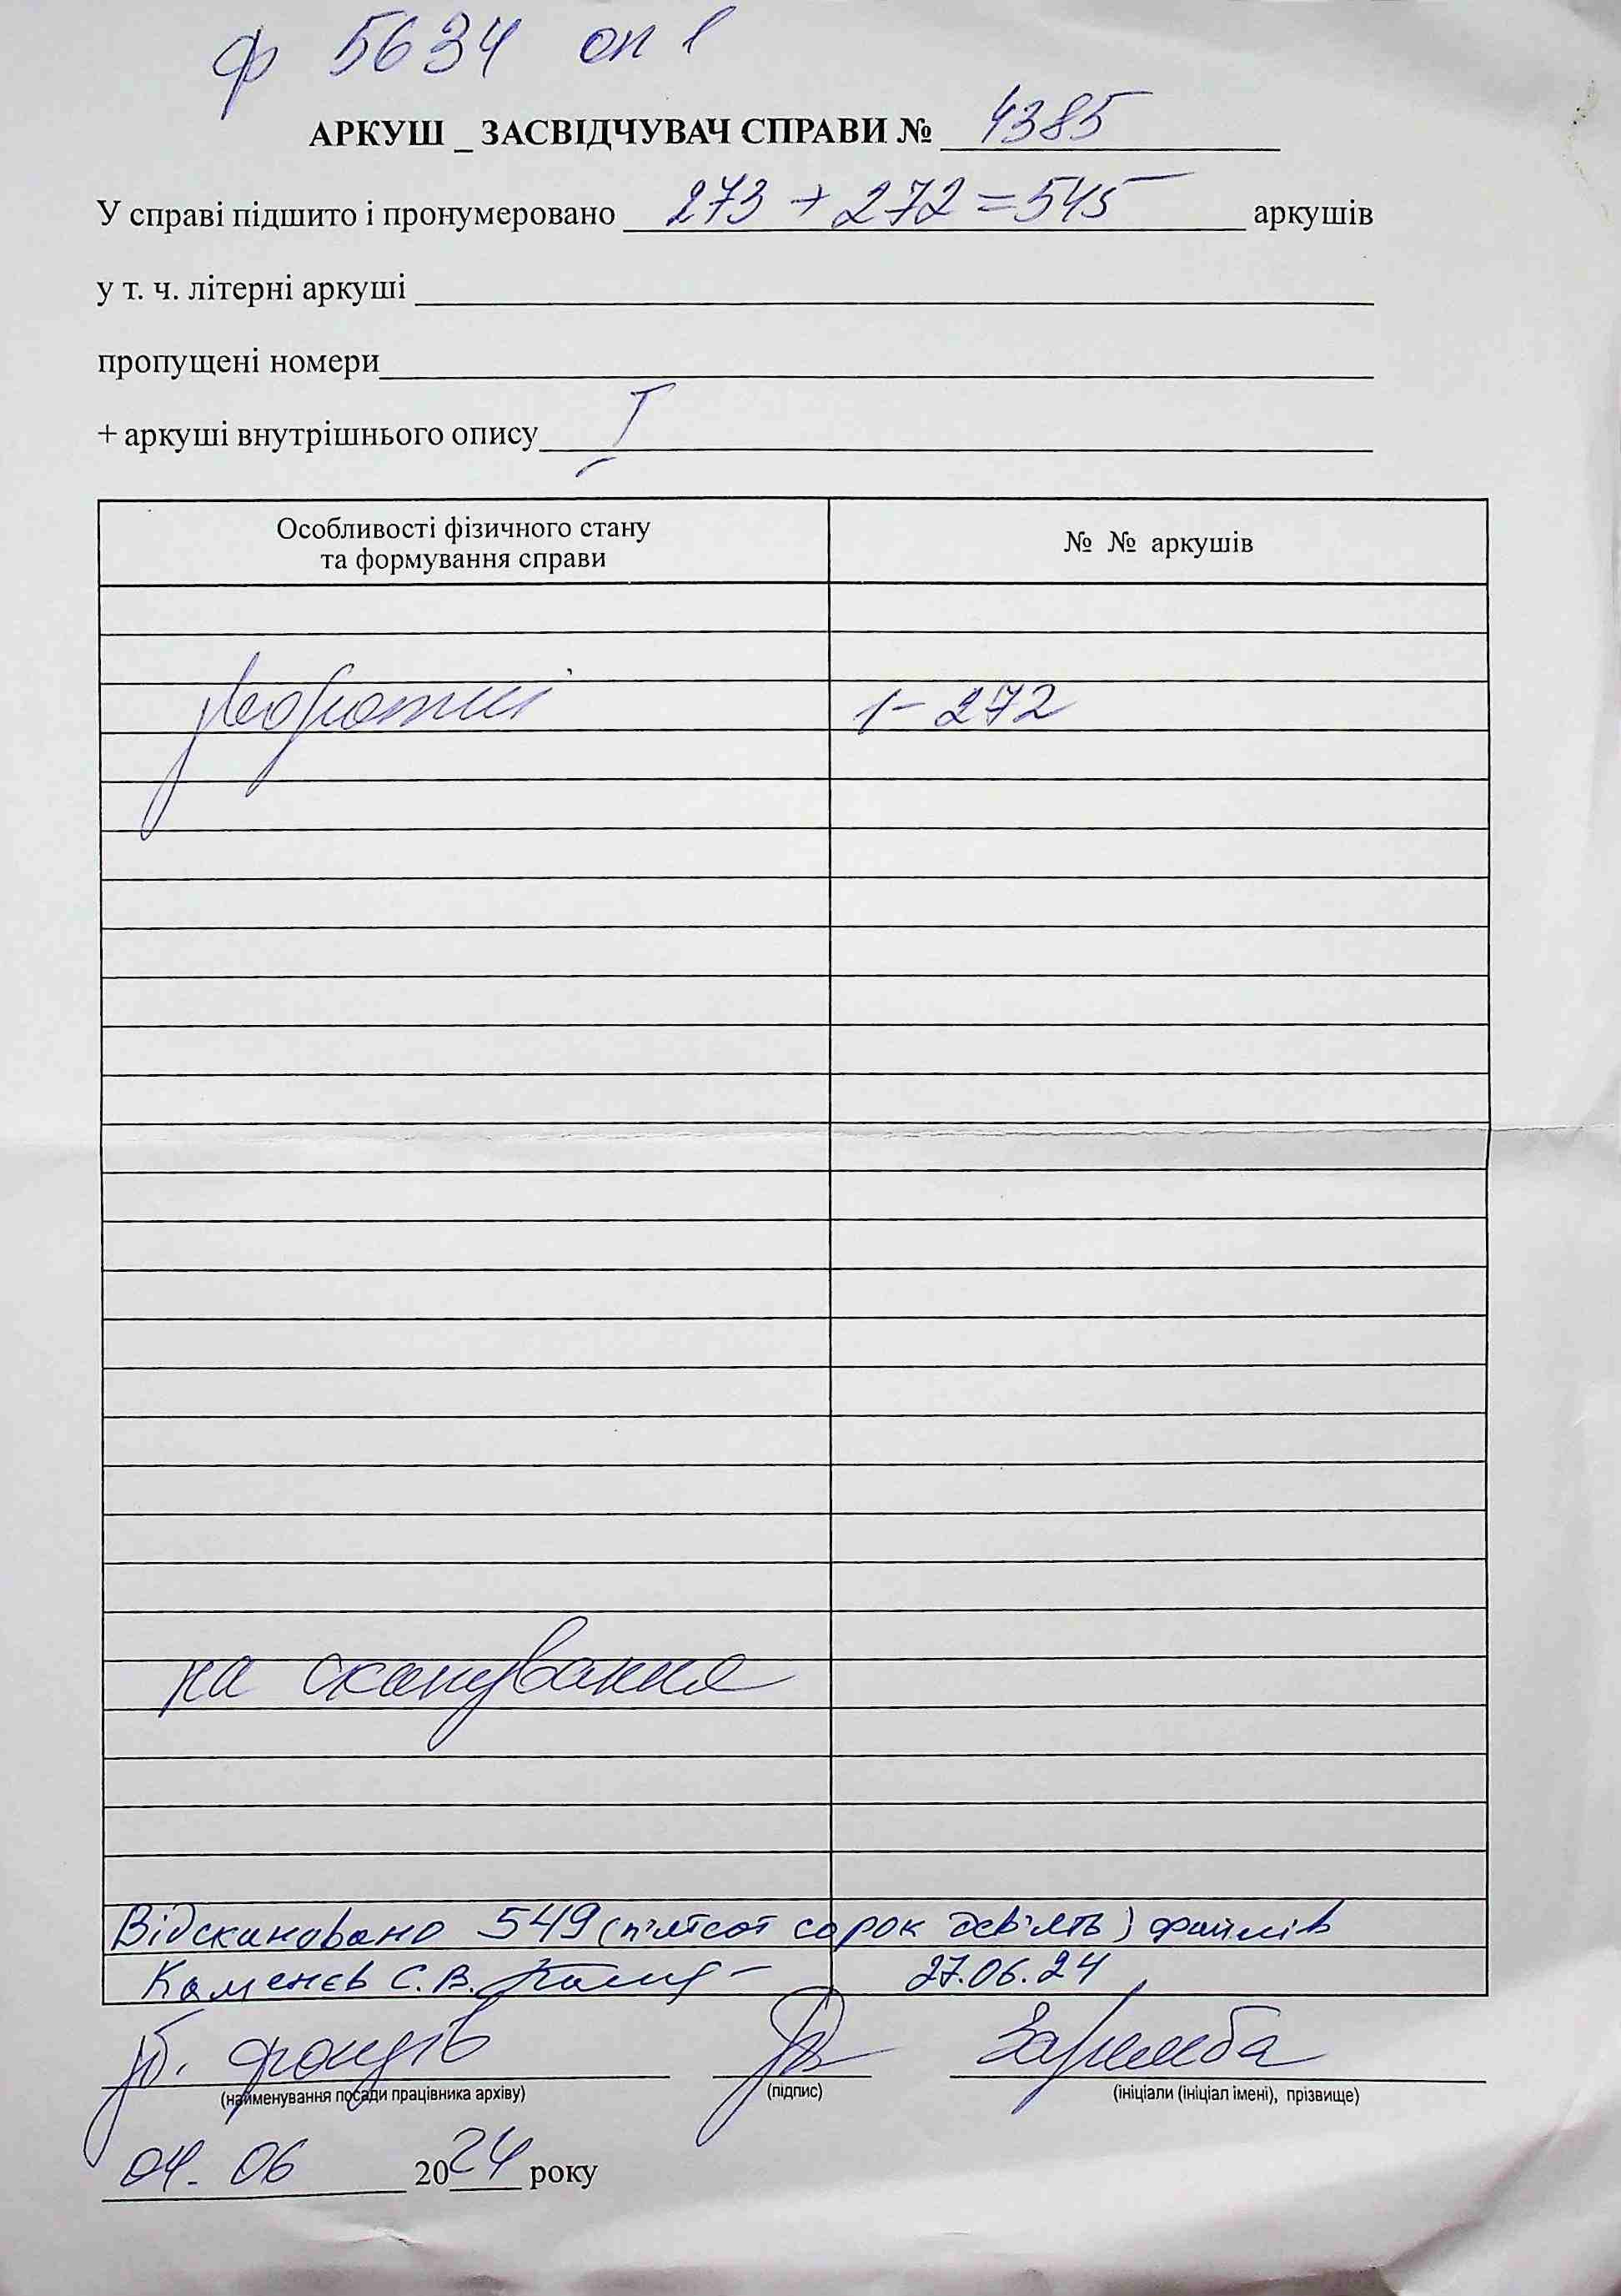 ф 5634 оп 1
АРКУШ _ ЗАСВІДЧУВАЧ СПРАВИ № 4385
У справі підшито і пронумеровано 273 + 272 = 545 аркушів
у т. ч. літерні аркуші
пропущені номери
+ аркуші внутрішнього опису I
Особливості фізичного стану та формування справи
№ № аркушів
звороти 1-272
на сканування
Відскановано 549 (п'ятсот сорок дев'ять) файлів
Каменєв С.В. 27.06.24
зб. фондів Заремба
(найменування посади працівника архіву) (підпис) (ініціали (ініціал імені), прізвище)
04. 06 2024 року